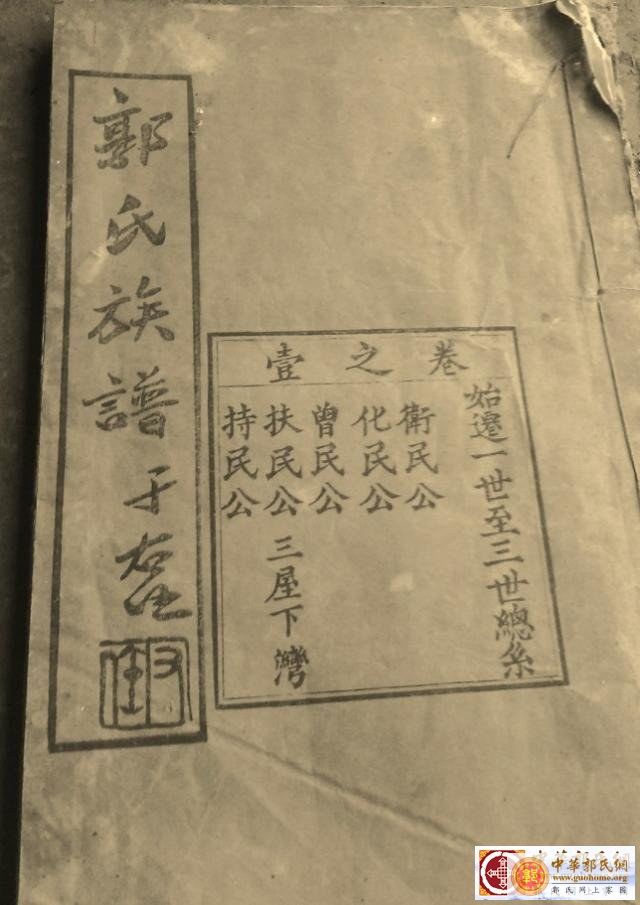 郭氏族譜于右任
卷之壹
始遷一世至三世總系
衛民公
化民公
曾民公
扶民公 三屋下灣
持民公
中華郭氏網
www.guohome.org
郭氏网上家園